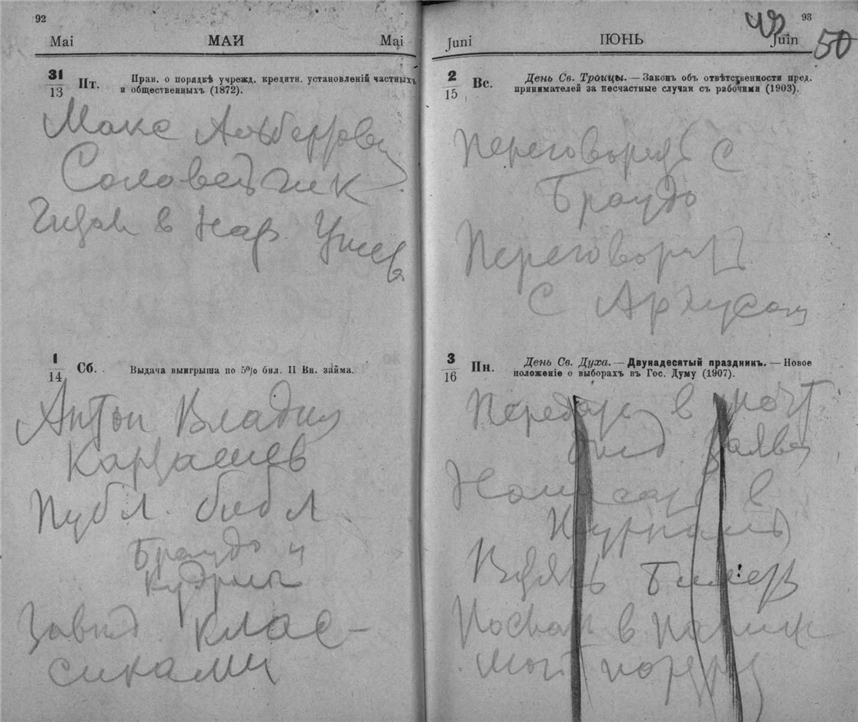 92
Mai МАЙ Mai
31
13 Пт. Прав. о порядкѣ учрежд. кредитн. установленій частныхъ
и общественныхъ (1872).
Макс Альбертович
Соловейчик
в нар. Унив
1
14 Сб. Выдача выигрыша по 5% бил. II Вн. займа.
Антон Владим
Карташев
Публ. библ.
Браудо и
Завед клас-
сиками
93
50
Juni ІЮНЬ Juin
2
15 Вс. День Св. Троицы. — Законъ объ отвѣтственности пред-
принимателей за несчастные случаи съ рабочими (1903).
Переговорить с
Браудо
Переговорить
с
3
16 Пн. День Св. Духа. — Двунадесятый праздникъ. — Новое
положеніе о выборахъ въ Гос. Думу (1907).
в почт
Написать в
Журналъ
Взять билет
в Париж
мой